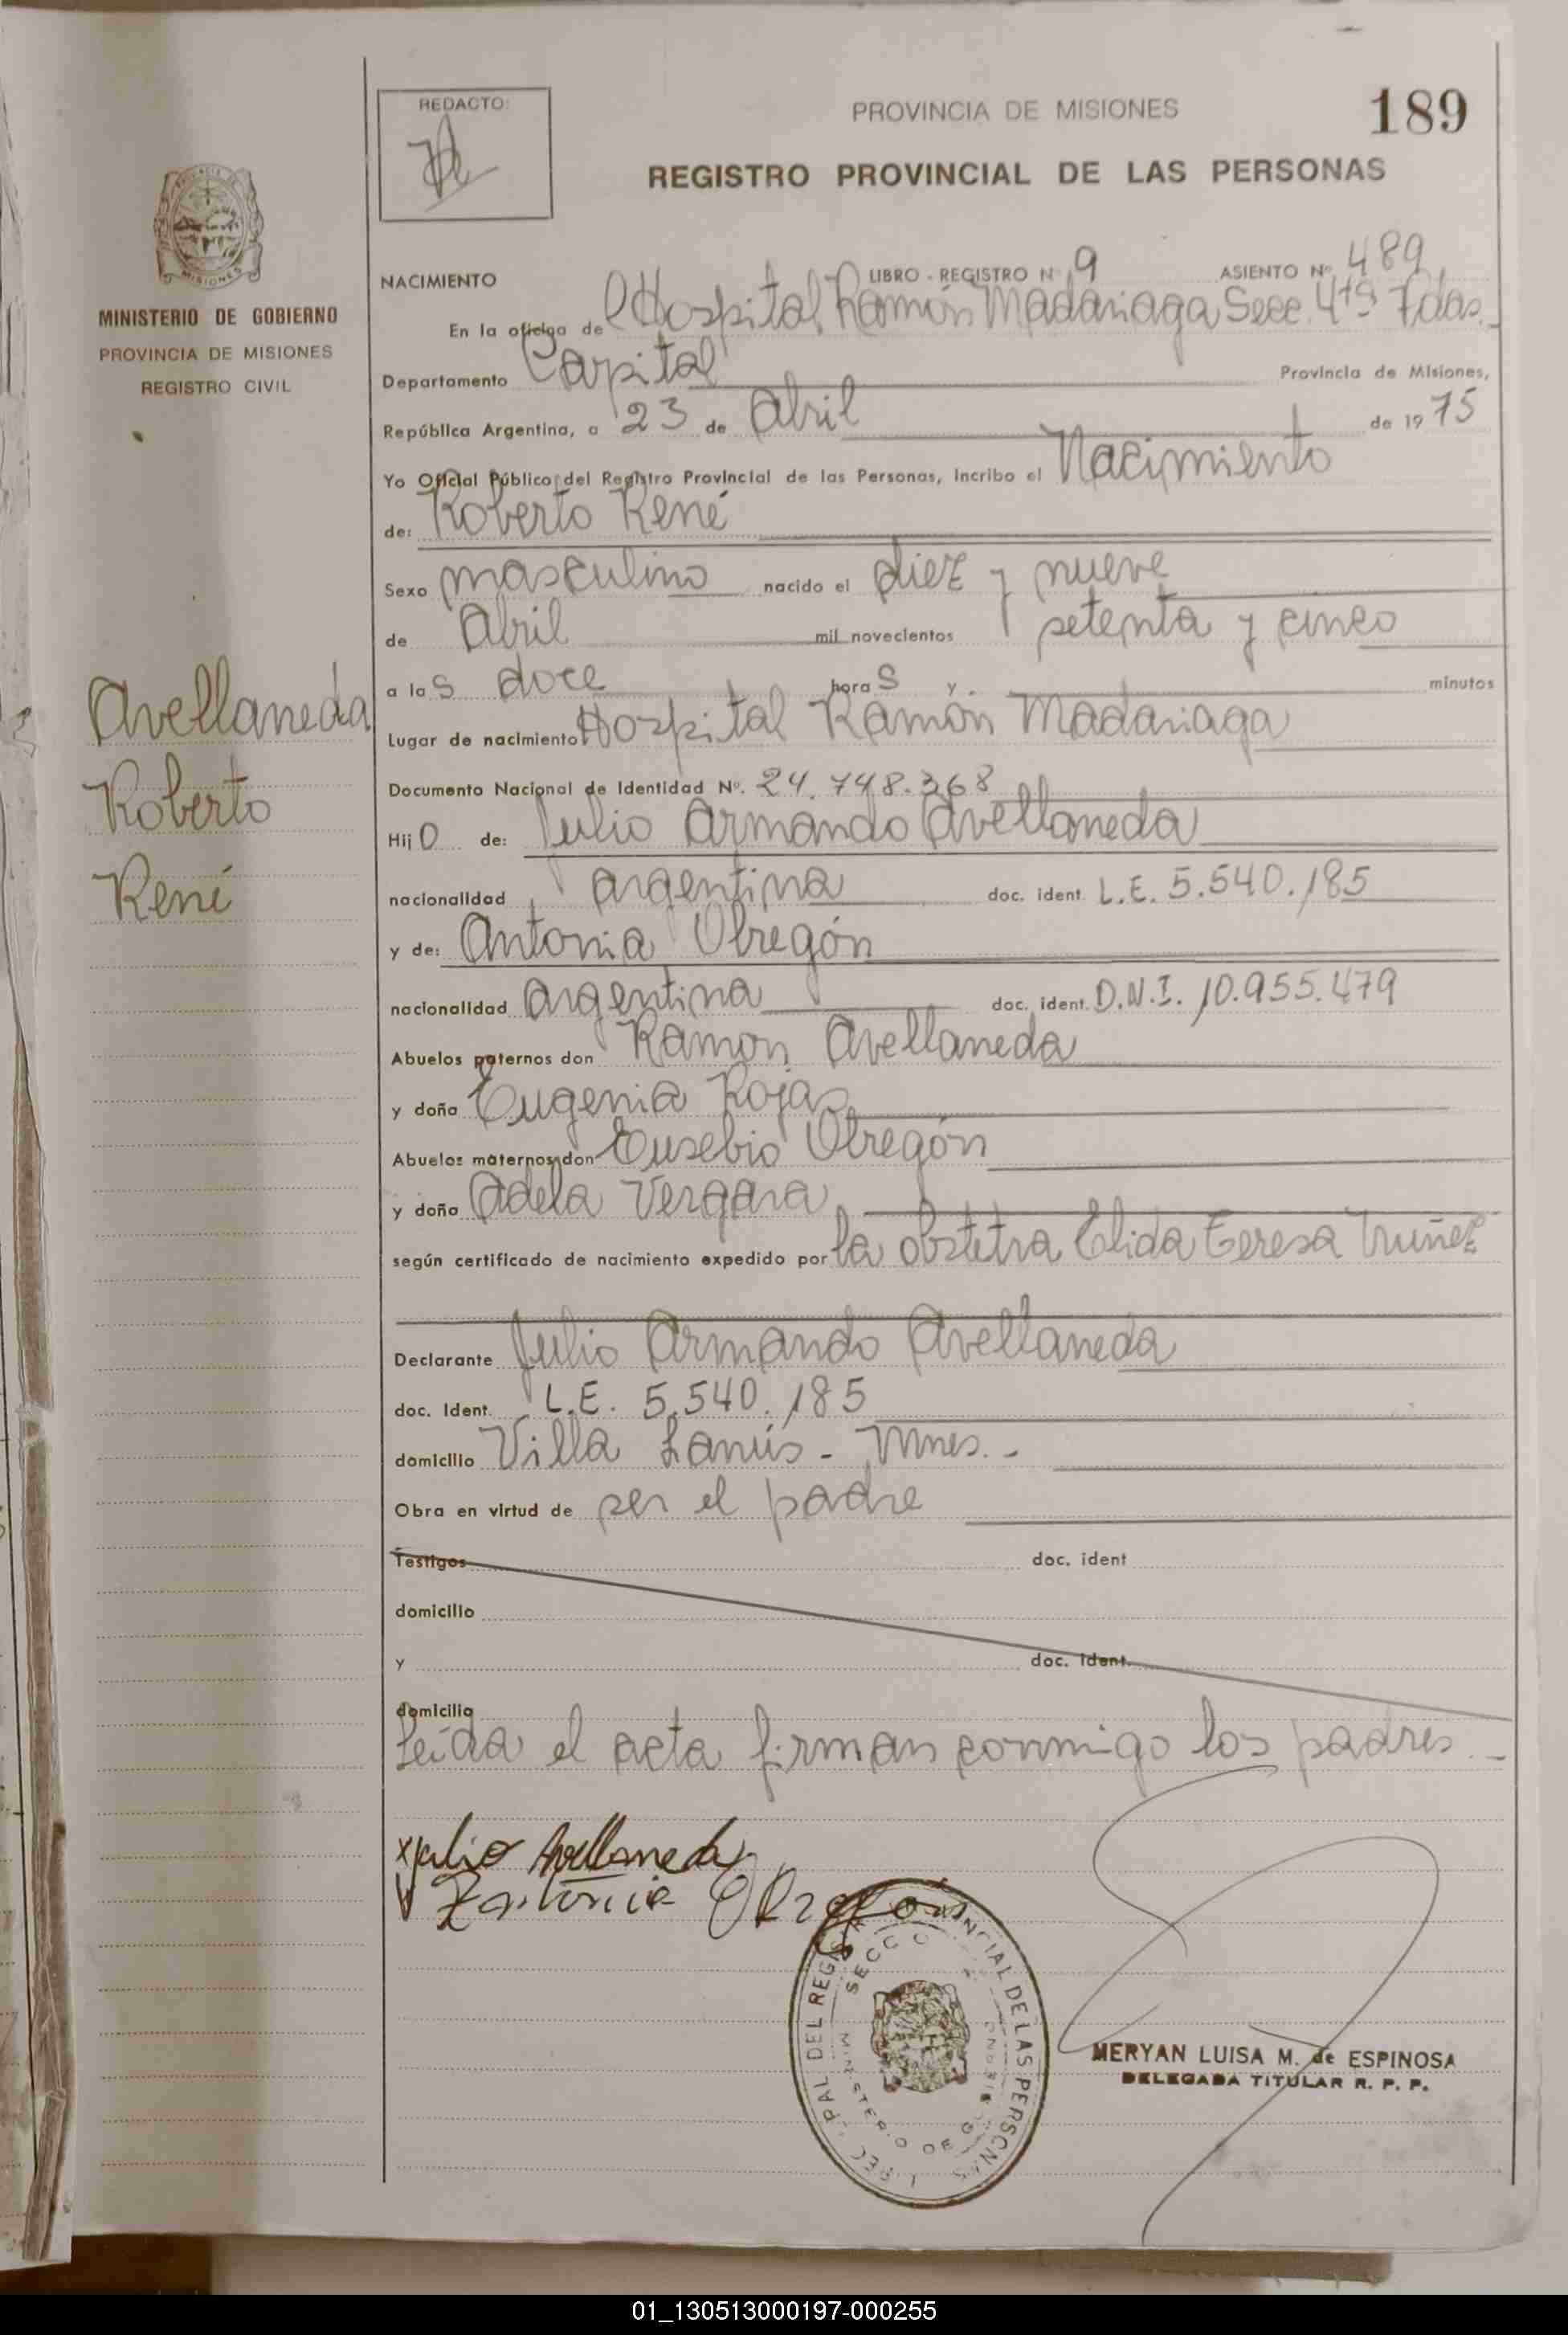 REDACTO:
PROVINCIA DE MISIONES
189
REGISTRO PROVINCIAL DE LAS PERSONAS
MINISTERIO DE GOBIERNO
PROVINCIA DE MISIONES
REGISTRO CIVIL
Avellaneda
Roberto
René
NACIMIENTO LIBRO - REGISTRO Nº 9 ASIENTO Nº 489
En la oficina de Hospital Ramón Madariaga Secc. 4ta Pdas.
Departamento Capital Provincia de Misiones,
República Argentina, a 23 de Abril de 1975
Yo Oficial Público del Registro Provincial de las Personas, incribo el Nacimiento
de: Roberto René
Sexo masculino nacido el diez y nueve
de Abril mil novecientos setenta y cinco
a las doce horas y minutos
Lugar de nacimiento Hospital Ramón Madariaga
Documento Nacional de Identidad Nº. 24.748.368
Hijo de: Julio Armando Avellaneda
nacionalidad argentina doc. ident. L.E. 5.540.185
y de: Antonia Obregón
nacionalidad argentina doc. ident. D.N.I. 10.955.479
Abuelos paternos don Ramon Avellaneda
y doña Eugenia Rojas
Abuelos maternos don Eusebio Obregón
y doña Adela Vergara
según certificado de nacimiento expedido por la obstetra Elida Teresa Nuñez
Declarante Julio Armando Avellaneda
doc. Ident. L.E. 5.540.185
domicilio Villa Lanús - Mnes. -
Obra en virtud de ser el padre
Testigos doc. ident
domicilio
y doc. ident.
domicilio
Leída el acta firman conmigo los padres. -
x Julio Avellaneda
Antonia Obregón
MERYAN LUISA M. de ESPINOSA
DELEGADA TITULAR R. P. P.
01_130513000197-000255